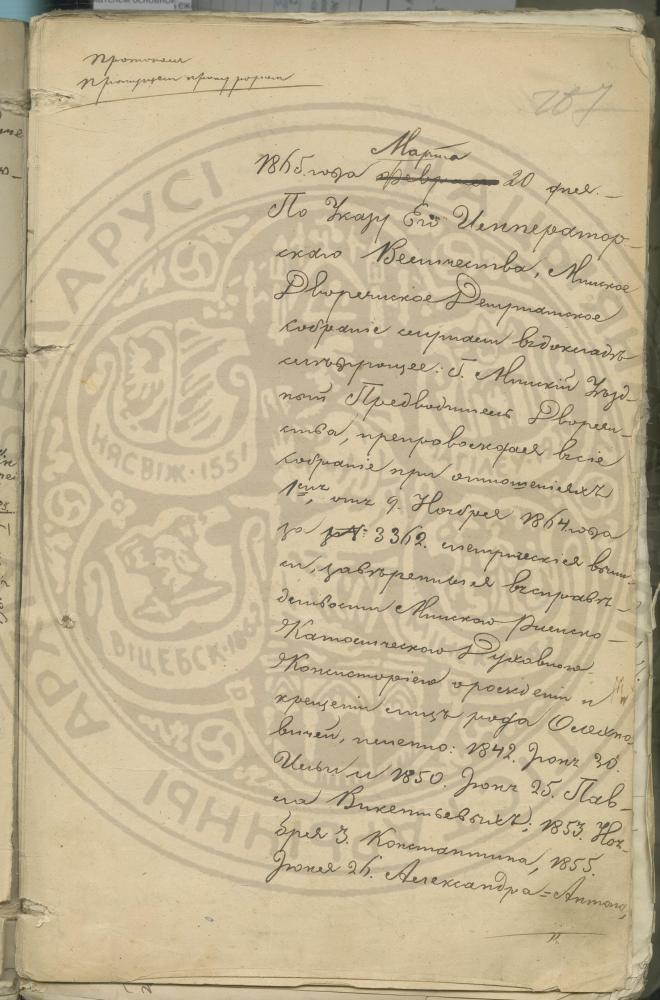 Протоколъ
207
Марта
1865 года февраля 20 дня.
По Указу Его Император-
скаго Величества, Минское
Дворянское Депутатское
собраніе слушали въ докладѣ
слѣдующее: Г. Минскій Уѣзд-
ный Предводитель Дворян-
ства, препровождая въ сіе
собраніе при отношеніяхъ
1мъ, отъ 9. Ноября 1864 года
за № 3362. метрическія выпи-
си, завѣренныя въ справед-
ливости Минскою Римско-
Католическою Духовною
Консисторіею о рожденіи и
крещеніи лицъ рода Олехно-
вичей, именно: 1842. Іюня 30.
Ильи и 1850. Іюня 25. Пав-
ла Викентьевыхъ; 1853. Ноя-
бря 3. Константина, 1855.
Іюня 26. Александра-Антона,
НЯСВІЖ·155
ВІЦЕБСК·1